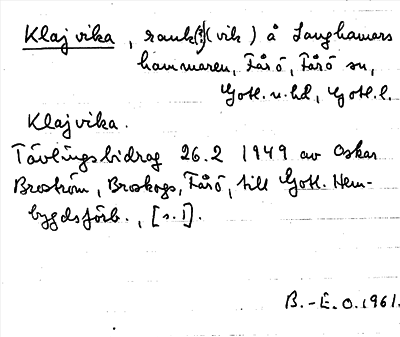 Klajvika, rauk(?)(vik) å Langhamars
hammaren, Fårö, Fårö sn,
Gotl. n. hd, Gotl. l.
Klajvika.
Tävlingsbidrag 26.2 1949 av Oskar
Broström, Broskogs, Fårö, till Gotl. Hem-
bygdsförb., [s. 1].
B.-E.O.1961.